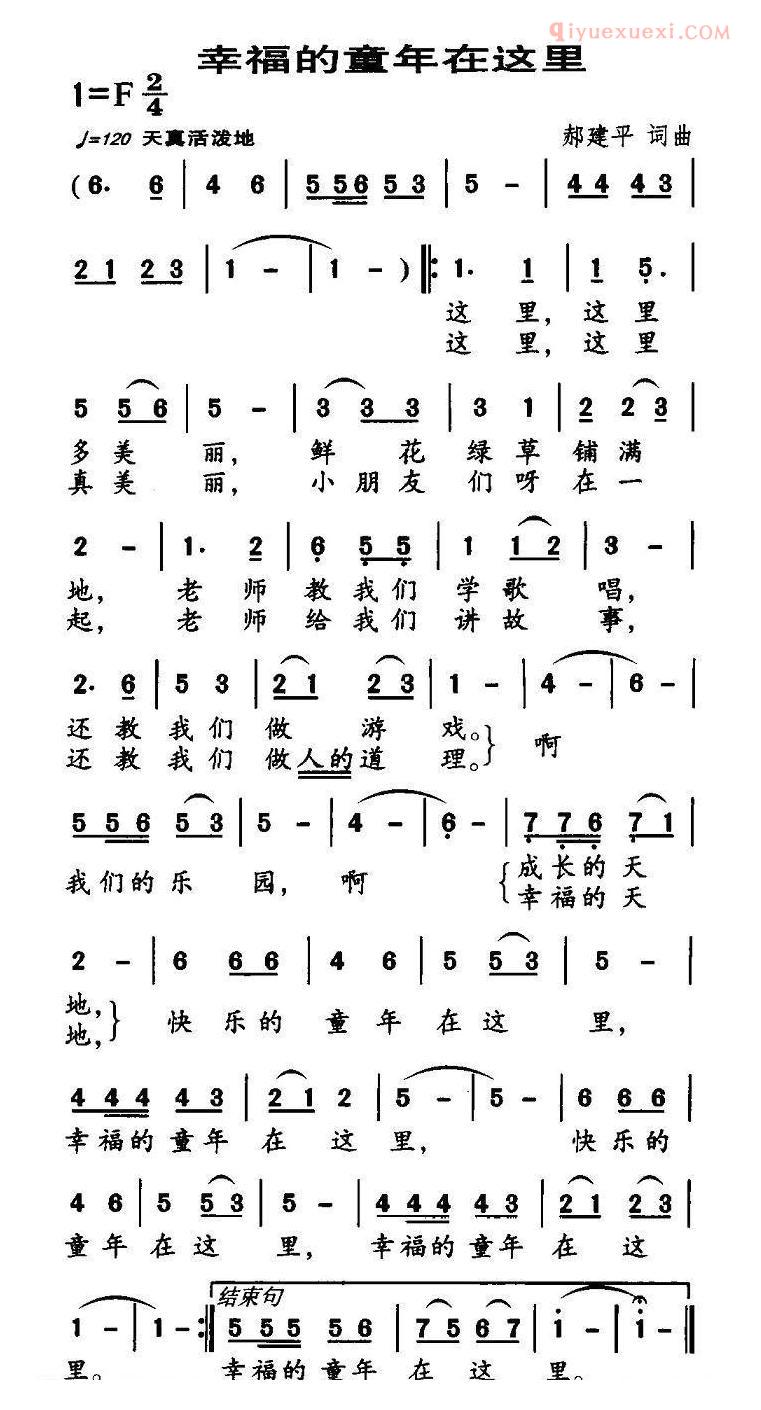 qiyuexuexi.com
幸福的童年在这里
1=F 2/4
♩=120 天真活泼地 郝建平 词曲
(6. 6 | 4 6 | 5 56 5 3 | 5 - | 4 4 4 3 |
2 1 2 3 | 1 - | 1 - ) ‖: 1. 1 | 1 5. |
这 里, 这 里
这 里, 这 里
5 5 6 | 5 - | 3 3 3 | 3 1 | 2 2 3 |
多 美 丽, 鲜 花 绿 草 铺 满
真 美 丽, 小 朋 友 们 呀 在 一
2 - | 1. 2 | 6 5 5 | 1 1 2 | 3 - |
地, 老 师 教 我 们 学 歌 唱,
起, 老 师 给 我 们 讲 故 事,
2. 6 | 5 3 | 2 1 2 3 | 1 - | 4 - | 6 - |
还 教 我 们 做 游 戏。 啊
还 教 我 们 做 人 的 道 理。
5 5 6 5 3 | 5 - | 4 - | 6 - | 7 7 6 7 1 |
我 们 的 乐 园, 啊 成 长 的 天
幸 福 的 天
2 - | 6 6 6 | 4 6 | 5 5 3 | 5 - |
地, 快 乐 的 童 年 在 这 里,
地,
4 4 4 4 3 | 2 1 2 | 5 - | 5 - | 6 6 6 |
幸 福 的 童 年 在 这 里, 快 乐 的
4 6 | 5 5 3 | 5 - | 4 4 4 4 3 | 2 1 2 3 |
童 年 在 这 里, 幸 福 的 童 年 在 这
结束句
1 - | 1 - :‖ 5 5 5 5 6 | 7 5 6 7 | i - | i - ‖
里。 幸 福 的 童 年 在 这 里。